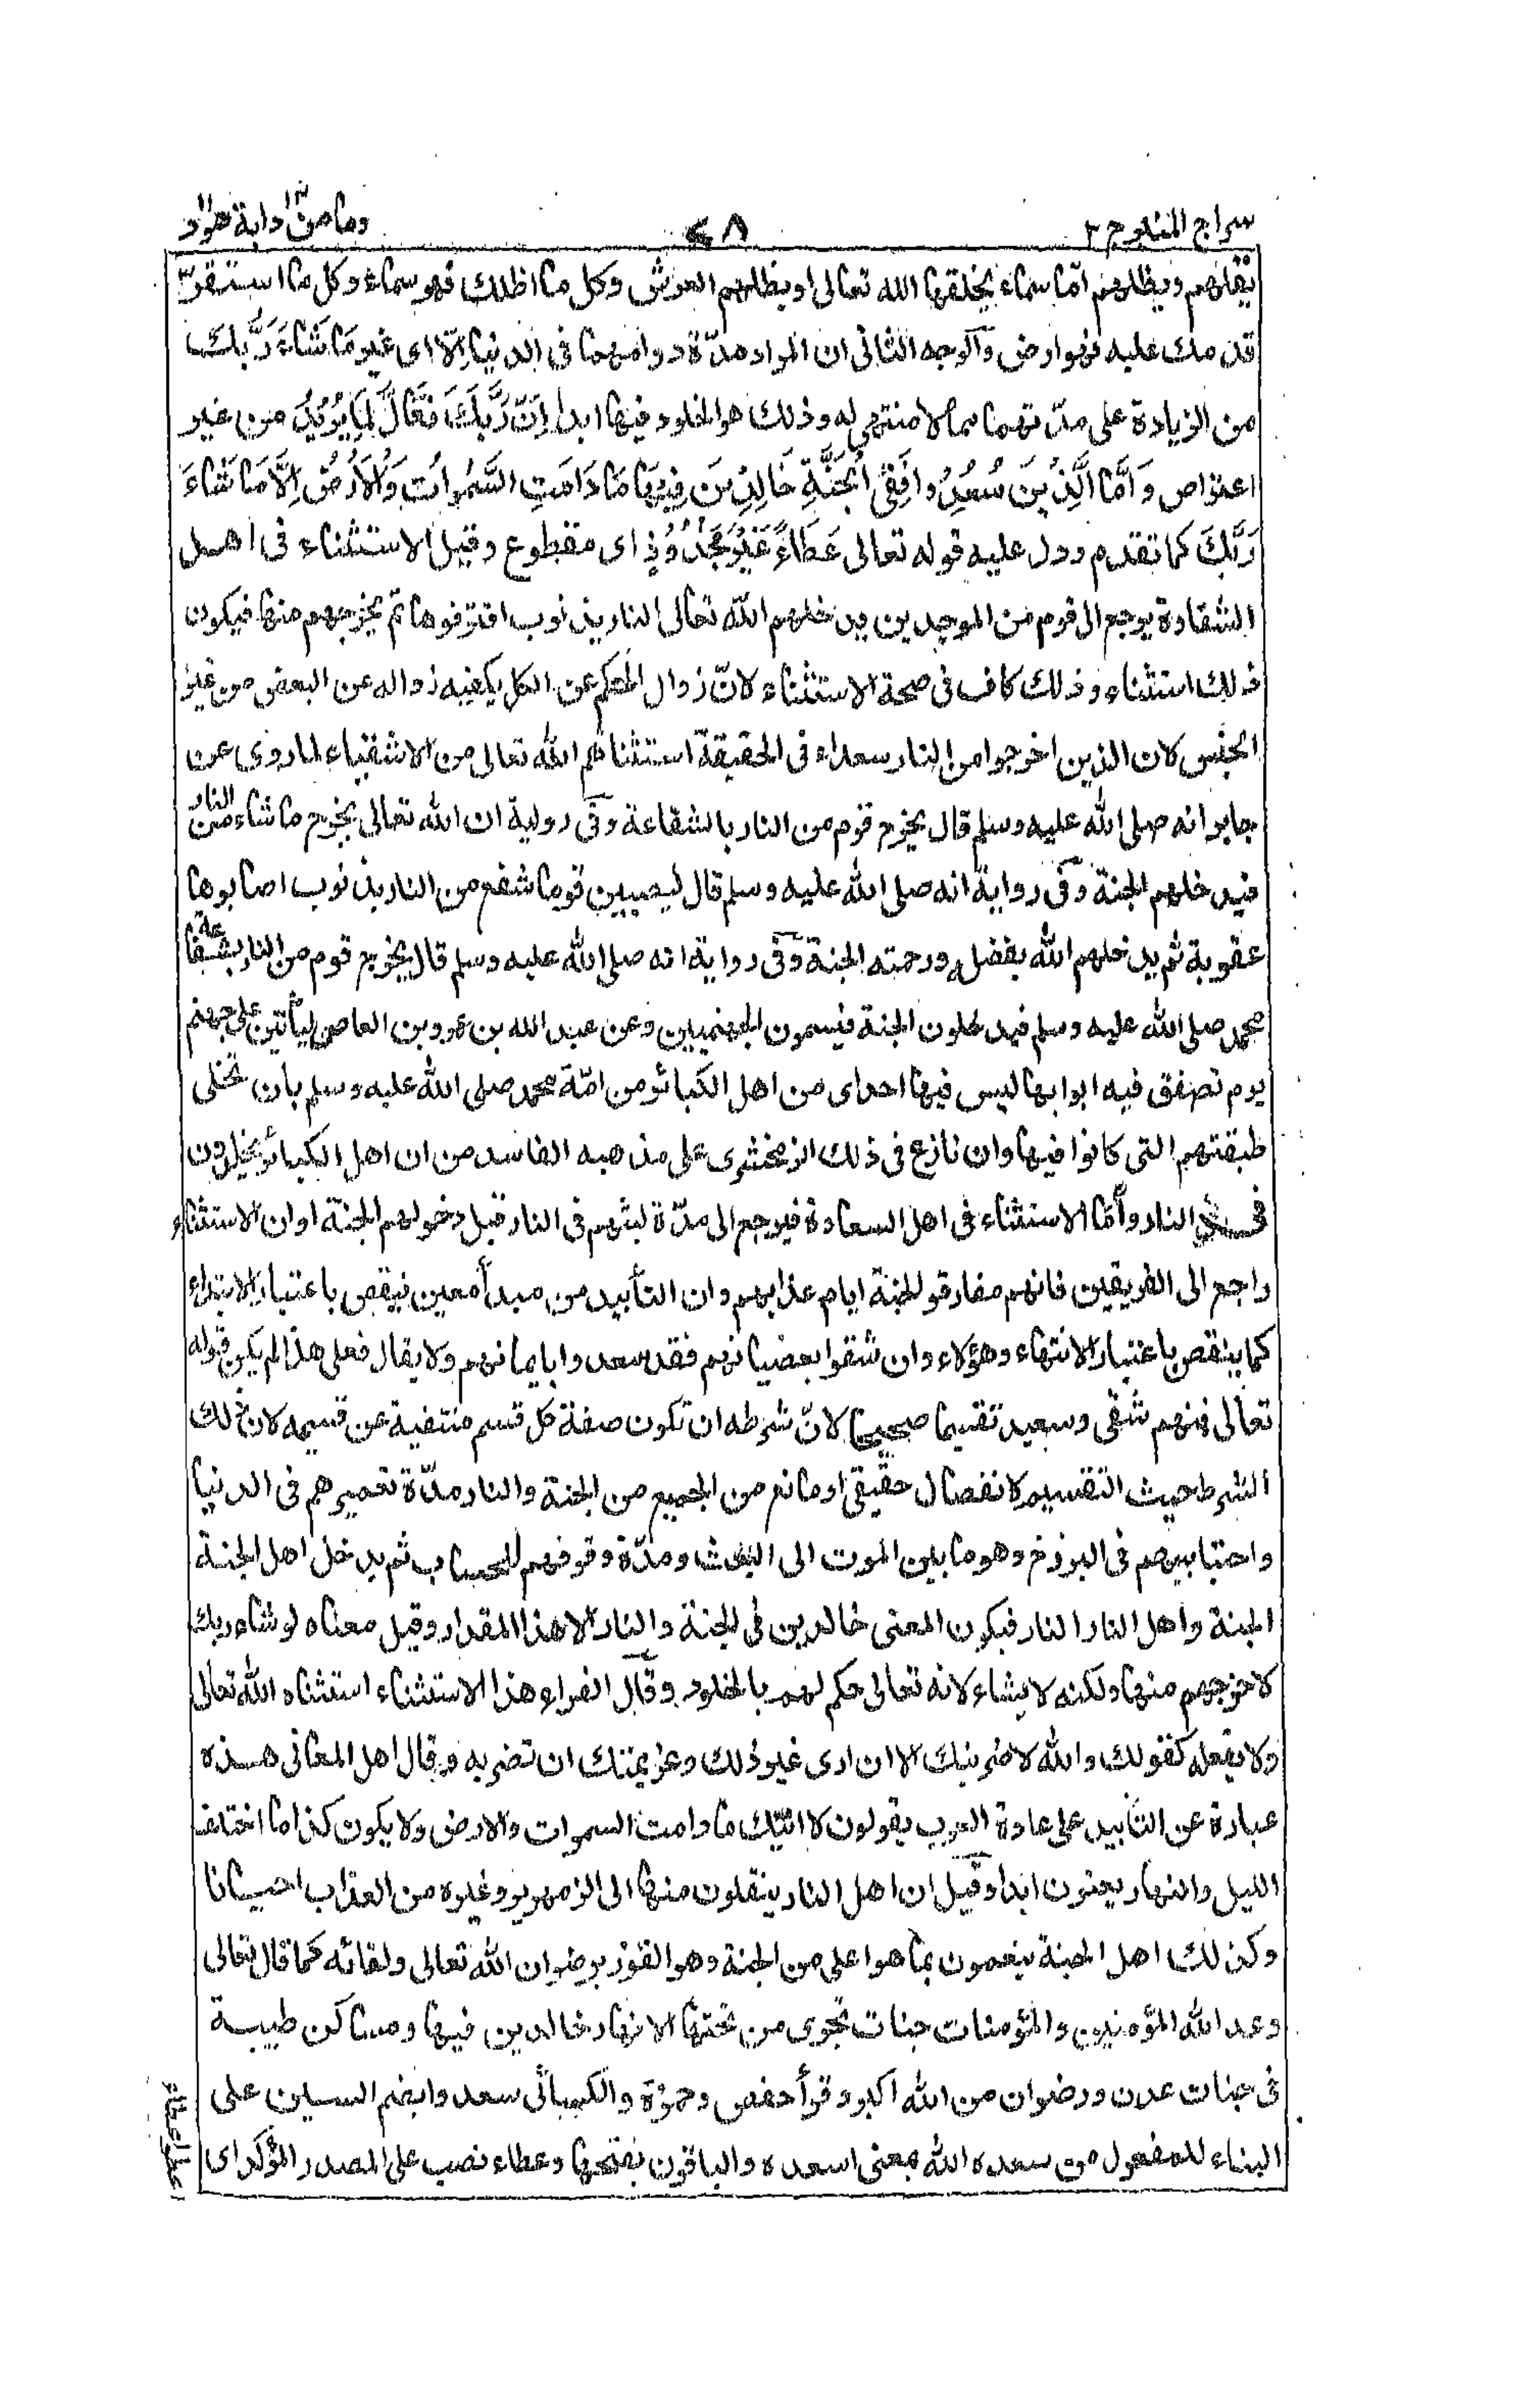 سراج المنير ج ٢
٧٨
وما من دابة ١٢ هود ١١
يقلهم ويظلهم امّا سماء يخلقها الله تعالى او يظلهم العرش وكل ما اظلك فهو سماء وكل ما استقرّ
قدمك عليه فهو ارض والوجه الثانى ان المراد مدّة دوامهما فى الدنيا اِلّا اى غير مَا شَاءَ رَبُّكَ
من الزيادة على مدّتهما مما لا منتهى له وذلك هو الخلود فيها ابدا اِنَّ رَبَّكَ فَعَّالٌ لِمَا يُرِيْدُ من غير
اعتراض وَاَمَّا الَّذِيْنَ سُعِدُوا فَفِى الْجَنَّةِ خَالِدِيْنَ فِيْهَا مَا دَامَتِ السَّمٰوَاتُ وَالْاَرْضُ اِلَّا مَا شَاءَ
رَبُّكَ كما تقدم ودل عليه قوله تعالى عَطَاءً غَيْرَ مَجْذُوْذٍ اى مقطوع وقيل الاستثناء فى اهل
الشقاوة يرجع الى قوم من الموحدين يدخلهم الله تعالى النار بذنوب اقترفوها ثم يخرجهم منها فيكون
ذلك استثناء وذلك كاف فى صحة الاستثناء لانّ زوال الحكم عن الكل يكفيه زواله عن البعض من غير
الجنس لان الذين اخرجوا من النار سعداء فى الحقيقة استثناهم الله تعالى من الاشقياء لما روى عن
جابر انه صلى الله عليه وسلم قال يخرج قوم من النار بالشفاعة وفى رواية ان الله تعالى يخرج ما شاء من النار
فيدخلهم الجنة وفى رواية انه صلى الله عليه وسلم قال ليصيبن قوما شفع من النار بذنوب اصابوها
عقوبة ثم يدخلهم الله بفضله ورحمته الجنة وفى رواية انه صلى الله عليه وسلم قال يخرج قوم من النار بشفاعة
محمد صلى الله عليه وسلم فيدخلون الجنة فيسمون الجهنميين وعن عبد الله بن عمرو بن العاص ليأتين على جهنم
يوم تصفق فيه ابوابها ليس فيها احد اى من اهل الكبائر من امّة محمد صلى الله عليه وسلم بأن تخلى
طبقتهم التى كانوا فيها وان نازع فى ذلك الزمخشرى على مذهبه الفاسد من ان اهل الكبائر يخلدون
فى النار وأمّا الاستثناء فى اهل السعادة فيرجع الى مدّة لبثهم فى النار قبل دخولهم الجنة او ان الاستثناء
راجع الى الفريقين فانهم مفارقو الجنة ايام عذابهم وان التأبيد من مبدأ معين فينقص باعتبار الابتداء
كما ينقص باعتبار الانتهاء وهؤلاء وان شقوا بعصيانهم فقد سعدوا بايمانهم ولا يقال فعلى هذا لم يكن قوله
تعالى فمنهم شقى وسعيد تقسيما صحيحا لانّ شرطه ان تكون صفة كل قسم منتفية عن قسيمه لان ذلك
الشرط حيث التقسيم لانفصال حقيقى او مانع من الجميع من الجنة والنار مدّة تعميرهم فى الدنيا
واحتباسهم فى البرزخ وهو ما بين الموت الى البعث ومدّة وقوفهم للحساب ثم يدخل اهل الجنة
الجنة واهل النار النار فيكون المعنى خالدين فى الجنة والنار الا هذا المقدار وقيل معناه لو شاء ربك
لاخرجهم منها ولكنه لا يشاء لانه تعالى حكم لهم بالخلود وقال الفراء هذا الاستثناء استثناه الله تعالى
ولا يفعله كقولك والله لاضربنك الا ان ارى غير ذلك وعزيمتك ان تضربه وقال اهل المعانى هذه
عبارة عن التأبيد على عادة العرب يقولون لا اتيك ما دامت السموات والارض ولا يكون كذا ما اختلف
الليل والنهار يعنون ابدا وقيل ان اهل النار ينقلون منها الى الزمهرير وغيره من العذاب احيانا
وكذلك اهل الجنة ينعمون بما هو اعلى من الجنة وهو الفوز برضوان الله تعالى ولقائه كما قال تعالى
وعد الله المؤمنين والمؤمنات جنات تجرى من تحتها الانهار خالدين فيها ومساكن طيبة
فى جنات عدن ورضوان من الله اكبر وقرأ حفص وحمزة والكسائى سعدوا بضم السين على
البناء للمفعول من سعده الله بمعنى اسعده والباقون بفتحها وعطاء نصب على المصدر المؤكد اى
اعطوا عطاء